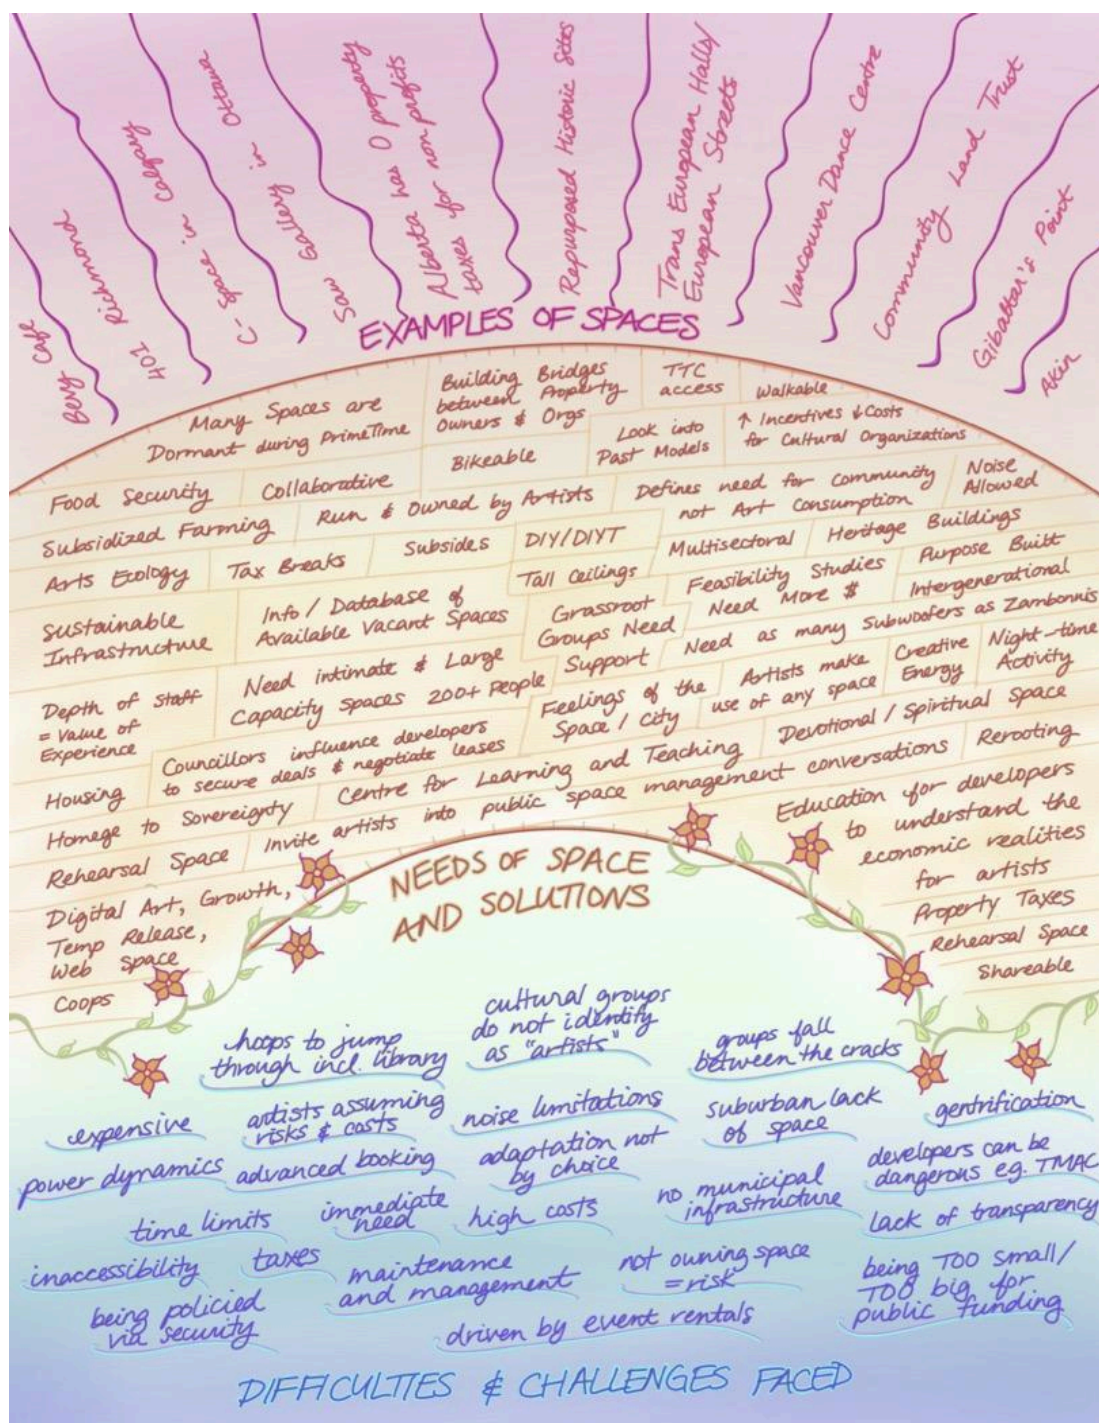 Berry Cafe
401 Richmond
C-Space in Calgary
Saw Gallery in Ottawa
Alberta has 0 property
taxes for non profits
Repurposed Historic Sites
Trans European Halls/
European Streets
Vancouver Dance Centre
Community Land Trust
Gibatter's Point
Akin
EXAMPLES OF SPACES
Many Spaces are
Dormant during PrimeTime
Building Bridges
between Property
Owners & Orgs
TTC
access
Walkable
Bikeable
Look into
Past Models
↑ Incentives ↓ Costs
for Cultural Organizations
Food Security
Collaborative
Subsidized Farming
Run & Owned by Artists
Defines need for community
not Art Consumption
Noise
Allowed
Arts Ecology
Tax Breaks
Subsides
DIY/DIYT
Multisectoral
Heritage Buildings
Tall Ceilings
Feasibility Studies
Need More $
Purpose Built
Intergenerational
Sustainable
Infrastructure
Info / Database of
Available Vacant Spaces
Grassroot
Groups Need
Support
Need as many Subwoofers as Zambonnis
Need intimate & Large
Capacity spaces 200+ People
Feelings of the
Space / City
Artists make
use of any space
Creative
Energy
Night-time
Activity
Depth of Staff
= Value of
Experience
Councillors influence developers
to secure deals & negotiate leases
Devotional / Spiritual Space
Housing
Centre for Learning and Teaching
Rerooting
Homege to Sovereignty
Invite artists into public space management conversations
Rehearsal Space
Education for developers
to understand the
economic realities
for artists
Digital Art, Growth,
Temp Release,
Web Space
Property Taxes
Rehearsal Space
Shareable
Coops
NEEDS OF SPACE
AND SOLUTIONS
hoops to jump
through incl. library
cultural groups
do not identify
as "artists"
groups fall
between the cracks
expensive
artists assuming
risks & costs
noise limitations
suburban lack
of space
gentrification
power dynamics
advanced booking
adaptation not
by choice
developers can be
dangerous e.g. TMAC
time limits
immediate
need
high costs
no municipal
infrastructure
lack of transparency
inaccessibility
taxes
maintenance
and management
not owning space
=risk
being TOO small/
TOO big for
public funding
being policied
via security
driven by event rentals
DIFFICULTIES & CHALLENGES FACED